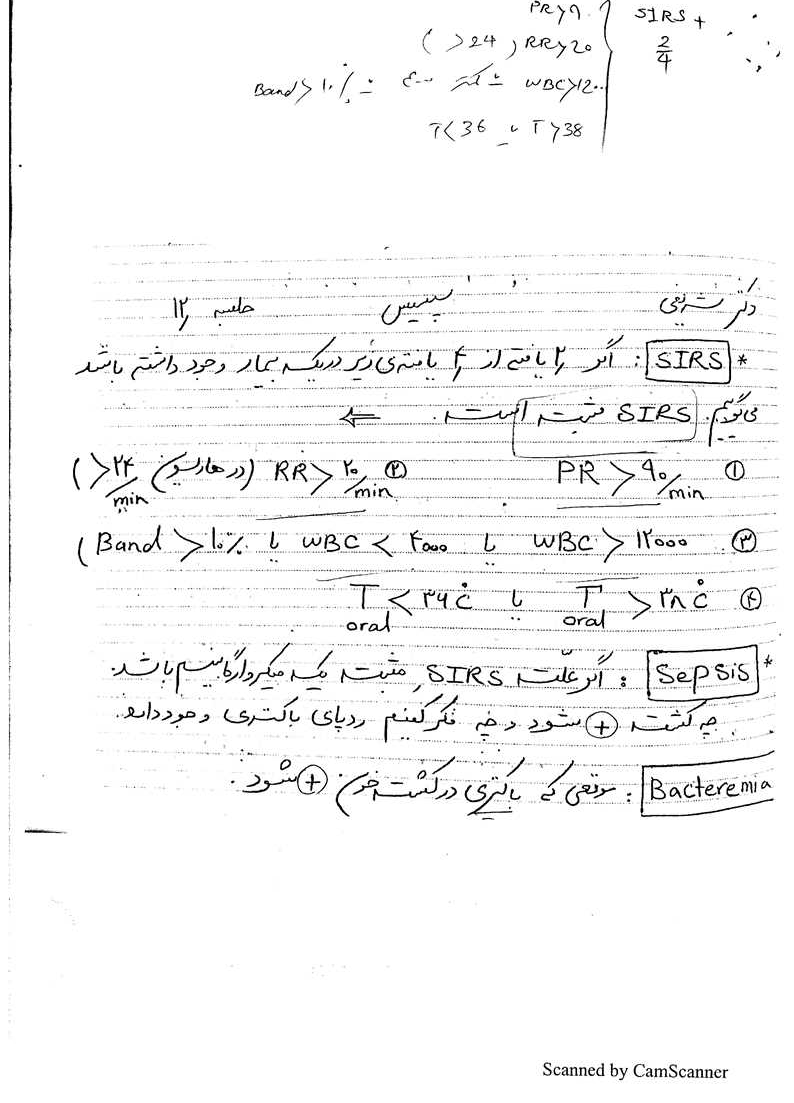 SIRS + PR>90
2/4
RR>20 (>24)
WBC>12.. یا کمتر ۴۰۰۰ یا Band>۱۰٪
T>38 یا T<36
دکتر شریفی سپسیس جلسه ۱۲
* SIRS : اگر ۲ یافته از ۴ یافته‌ی زیر در یک بیمار وجود داشته باشد
می‌گوییم SIRS مثبت است. ⇐
① PR > ۹۰/min ② RR > ۲۰/min (در هاریسون > ۲۴/min)
③ WBC > ۱۲۰۰۰ یا WBC < ۴۰۰۰ یا Band > ۱۰٪)
④ T oral > ۳۸°c یا T oral < ۳۶°c
* Sepsis : اگر علّت SIRS مثبت یک میکروارگانیسم باشد.
چه کشت + شود و چه فکر کنیم ردپای باکتری وجود دارد.
Bacteremia : موقعی که باکتری در کشت خون + شود.
Scanned by CamScanner